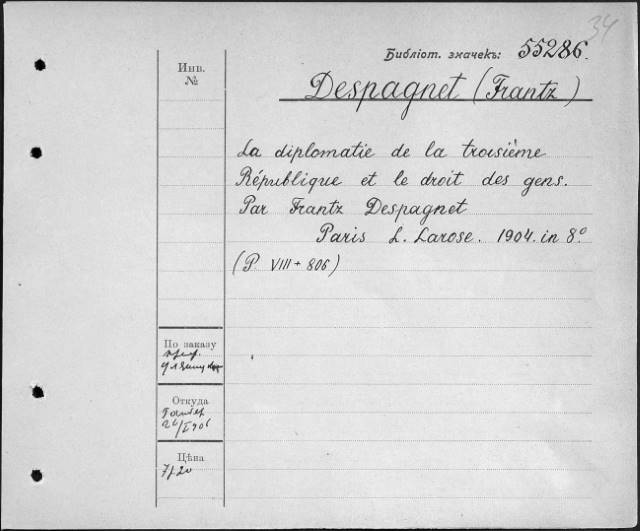 34
Библіот. значекъ: 55286.
Инв.
№
Despagnet (Frantz)
La diplomatie de la troisième
République et le droit des gens.
Par Frantz Despagnet
Paris L. Larose. 1904. in 8º
(P. VIII + 806)
По заказу
проф.
Откуда
Цѣна
7f20